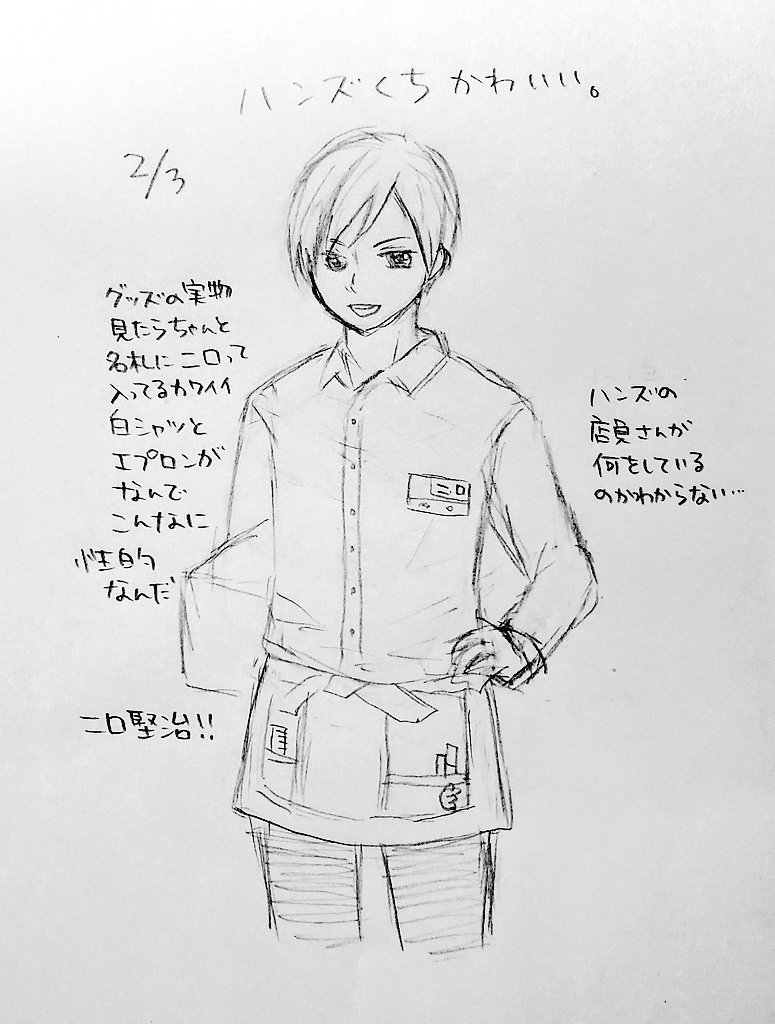 ハンズくち かわいい。
2/3
グッズの実物
見たらちゃんと
名札にニロって
入ってるカワイイ
白シャツと
エプロンが
なんで
こんなに
性的
なんだ
ハンズの
店員さんが
何をしている
のかわからない…
ニロ
二口堅治!!